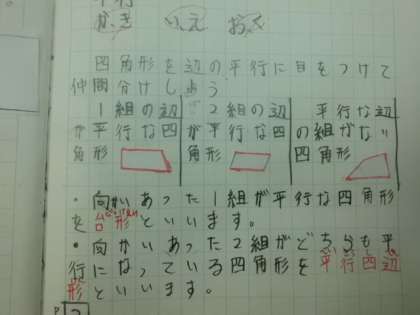 平行
かき いえ おく
四角形を辺の平行に目をつけて
仲間分けしよう
1組の辺が平行な四角形
2組の辺が平行な四角形
平行な辺の組がない四角形
・向かいあった1組が平行な四角形
を台形といいます。
・向かいあった2組がどちらも平
行になっている四角形を平行四辺
形といいます。
P